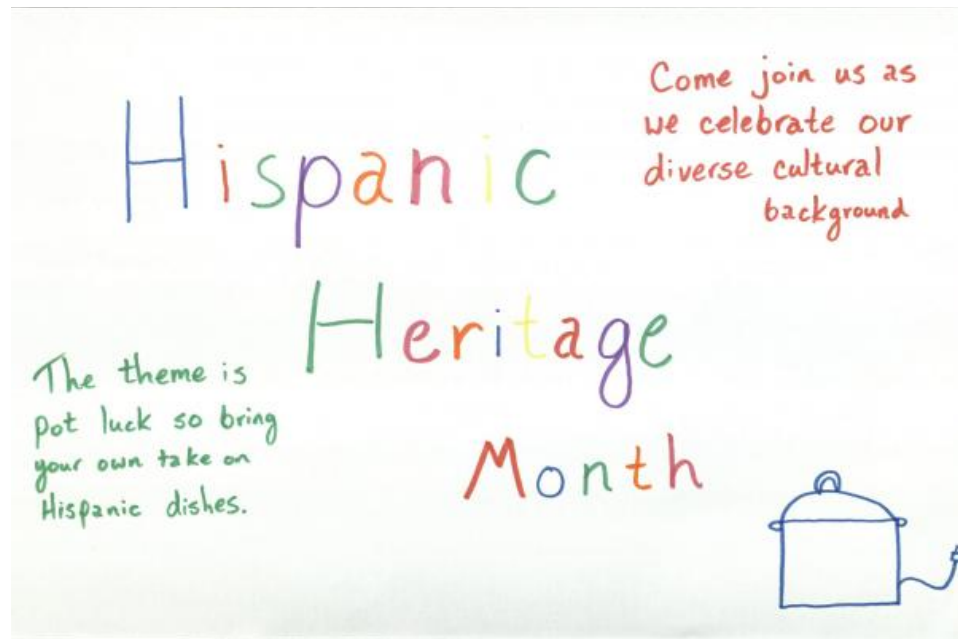 Hispanic
Heritage
Month
Come join us as
we celebrate our
diverse cultural
background
The theme is
pot luck so bring
your own take on
Hispanic dishes.